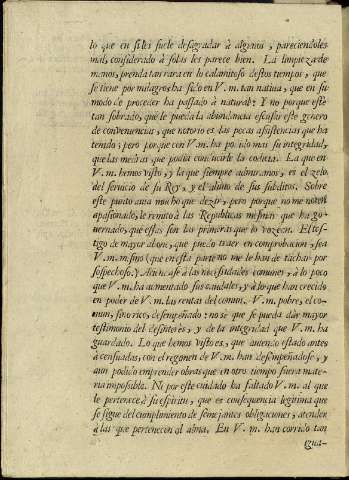 lo que en sí les suele desagradar à algunos, pareciendoles
mal, considerado à solas les parece bien. La limpieza de
manos, prenda tan rara en lo calamitoso destos tiempos, que
se tiene por milagro, ha sido en V. m. tan natiua, que en su
modo de proceder ha passado à natural: Y no porque este
tan sobrado, que le pueda la abundancia escusar este genero
de conueniencia; que notorio es las pocas assistencias que ha
tenido; pero porque con V. m. ha podido mas su integridad,
que las medras que podia conducirle la codicia. La que en
V. m. hemos visto, y la que siempre admiramos, es el zelo
del seruicio de su Rey, y el aliuio de sus subditos. Sobre
este punto auia mucho que dezir, pero porque no me noten
apasionado, le remito à las Republicas mesmas que ha go-
uernado, que essas son las primeras que lo vozean. El tes-
tigo de mayor abono, que puedo traer en comprobacion, sea
V. m. mesmo (que en esta parte no me le han de tachar por
sospechoso.) Atiendase à las necessidades comunes, à lo poco
que V. m. ha aumentado sus caudales, y à lo que han crecido
en poder de V. m. las rentas del comun. V. m. pobre, el co-
mun, sino rico, desempeñado: no sè que se pueda dàr mayor
testimonio del desinterès, y de la integridad que V. m. ha
guardado. Lo que hemos visto es, que auiendo estado antes
à censuadas, con el regimen de V. m. han desempeñadose, y
aun podido emprender obras que en otro tiempo fuera mate-
ria imposible. Ni por este cuidado ha faltado V. m. al que
le pertenece à su espiritu, que es consequencia legitima que
se sigue del cumplimiento de semejantes obligaciones, atender
à las que pertenecen al alma. En V. m. han corrido tan
igua-